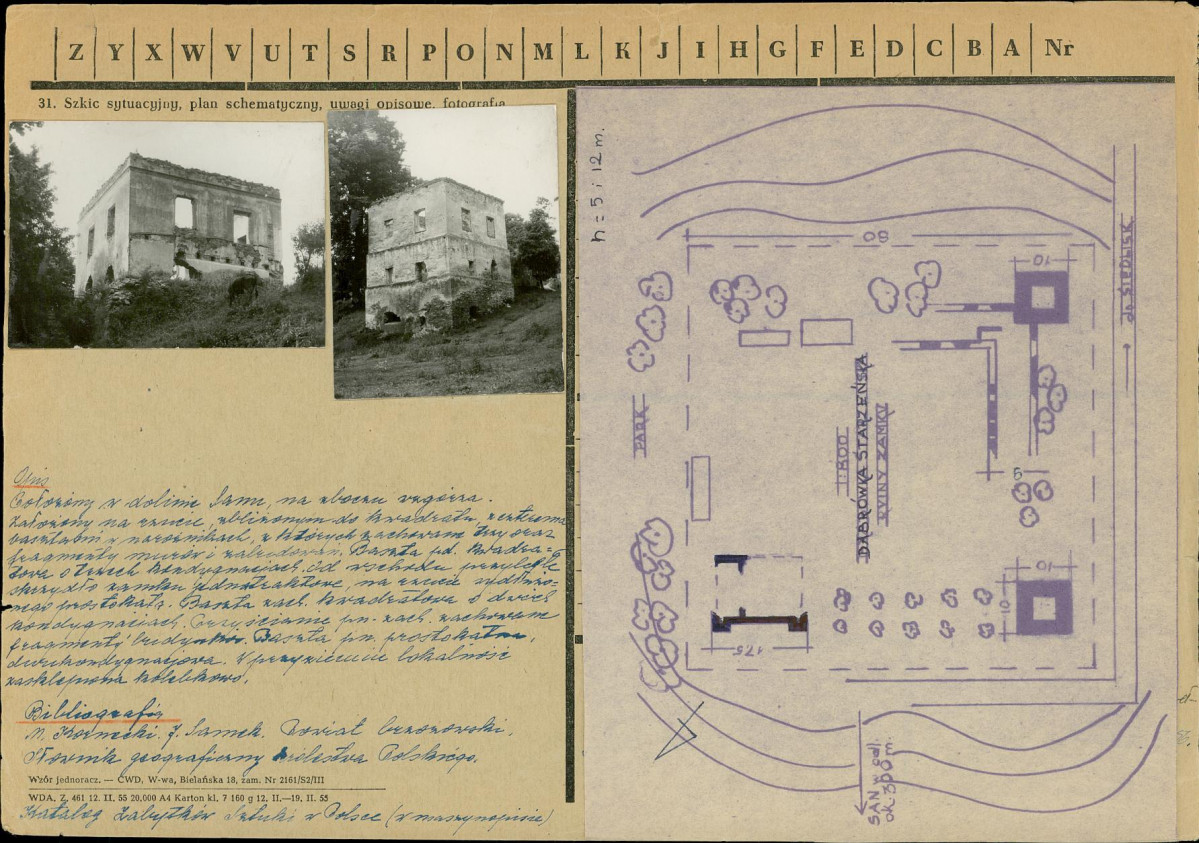 Z Y X W V U T S R P O N M L K J I H G F E D C B A Nr
31. Szkic sytuacyjny, plan schematyczny, uwagi opisowe, fotografia
Opis
Położony w dolinie Sanu, na zboczu wzgórza.
Założony na rzucie, zbliżonym do kwadratu z czterema
basztami w narożnikach, z których zachowane trzy oraz
fragmenty murów i zabudowań. Baszta pd. kwadra-
towa o trzech kondygnacjach. Od wschodu przyległe
skrzydło zamku jednotraktowe, na rzucie wydłużo-
nego prostokąta. Baszta zach. kwadratowa o dwóch
kondygnacjach. Przy ścianie pn. zach. zachowane
fragmenty budynków. Baszta pn. prostokątna,
dwukondygnacjowa. W przyziemiu lokalność
zasklepiona kolebkowo.
Bibliografia
M. Kornecki. J. Samek. Powiat brzozowski.
Słownik geograficzny Królestwa Polskiego.
Wzór jednoracz. — CWD, W-wa, Bielańska 18, zam. Nr 2161/S2/III
WDA. Z. 461 12. II. 55 20.000 A4 Karton kl. 7 160 g 12. II.—19. II. 55
Katalog Zabytków Sztuki w Polsce (w maszynopisie)
h = 5 i 12 m.
60
10
do SIEDLISK
PARK
1:800
DĄBRÓWKA STARZEŃSKA
RUINY ZAMKU
5
10
10
17.5
SAN w odl.
ok. 300 m.